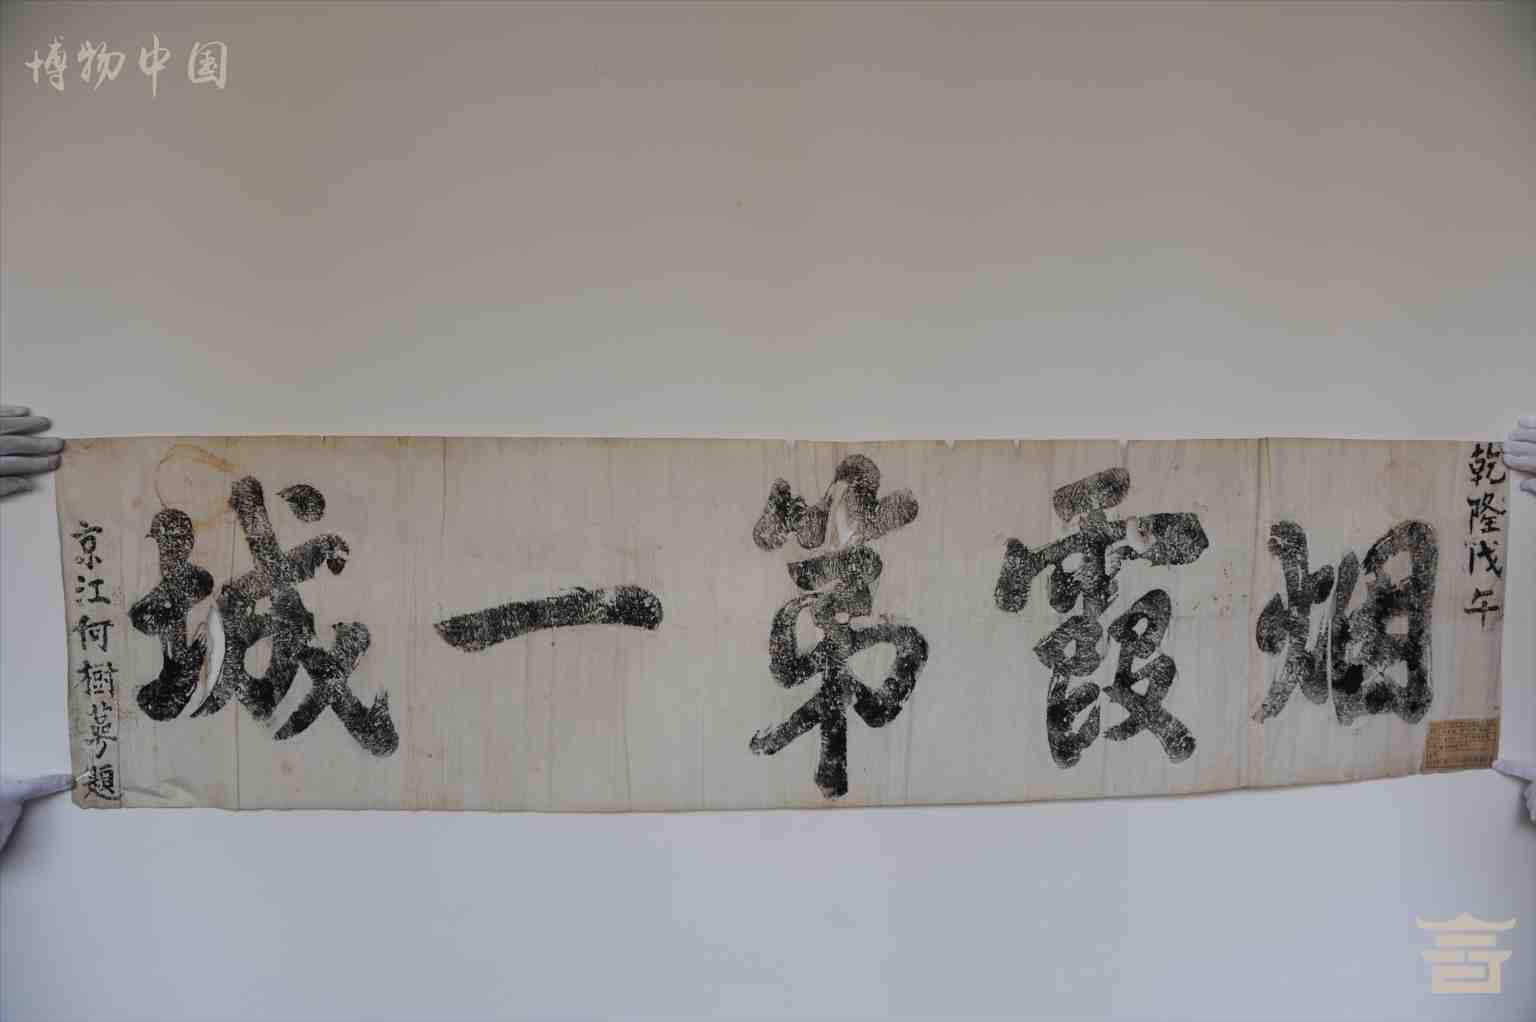 博物中国
乾隆戊午
烟霞第一城
京江何樹蕚題